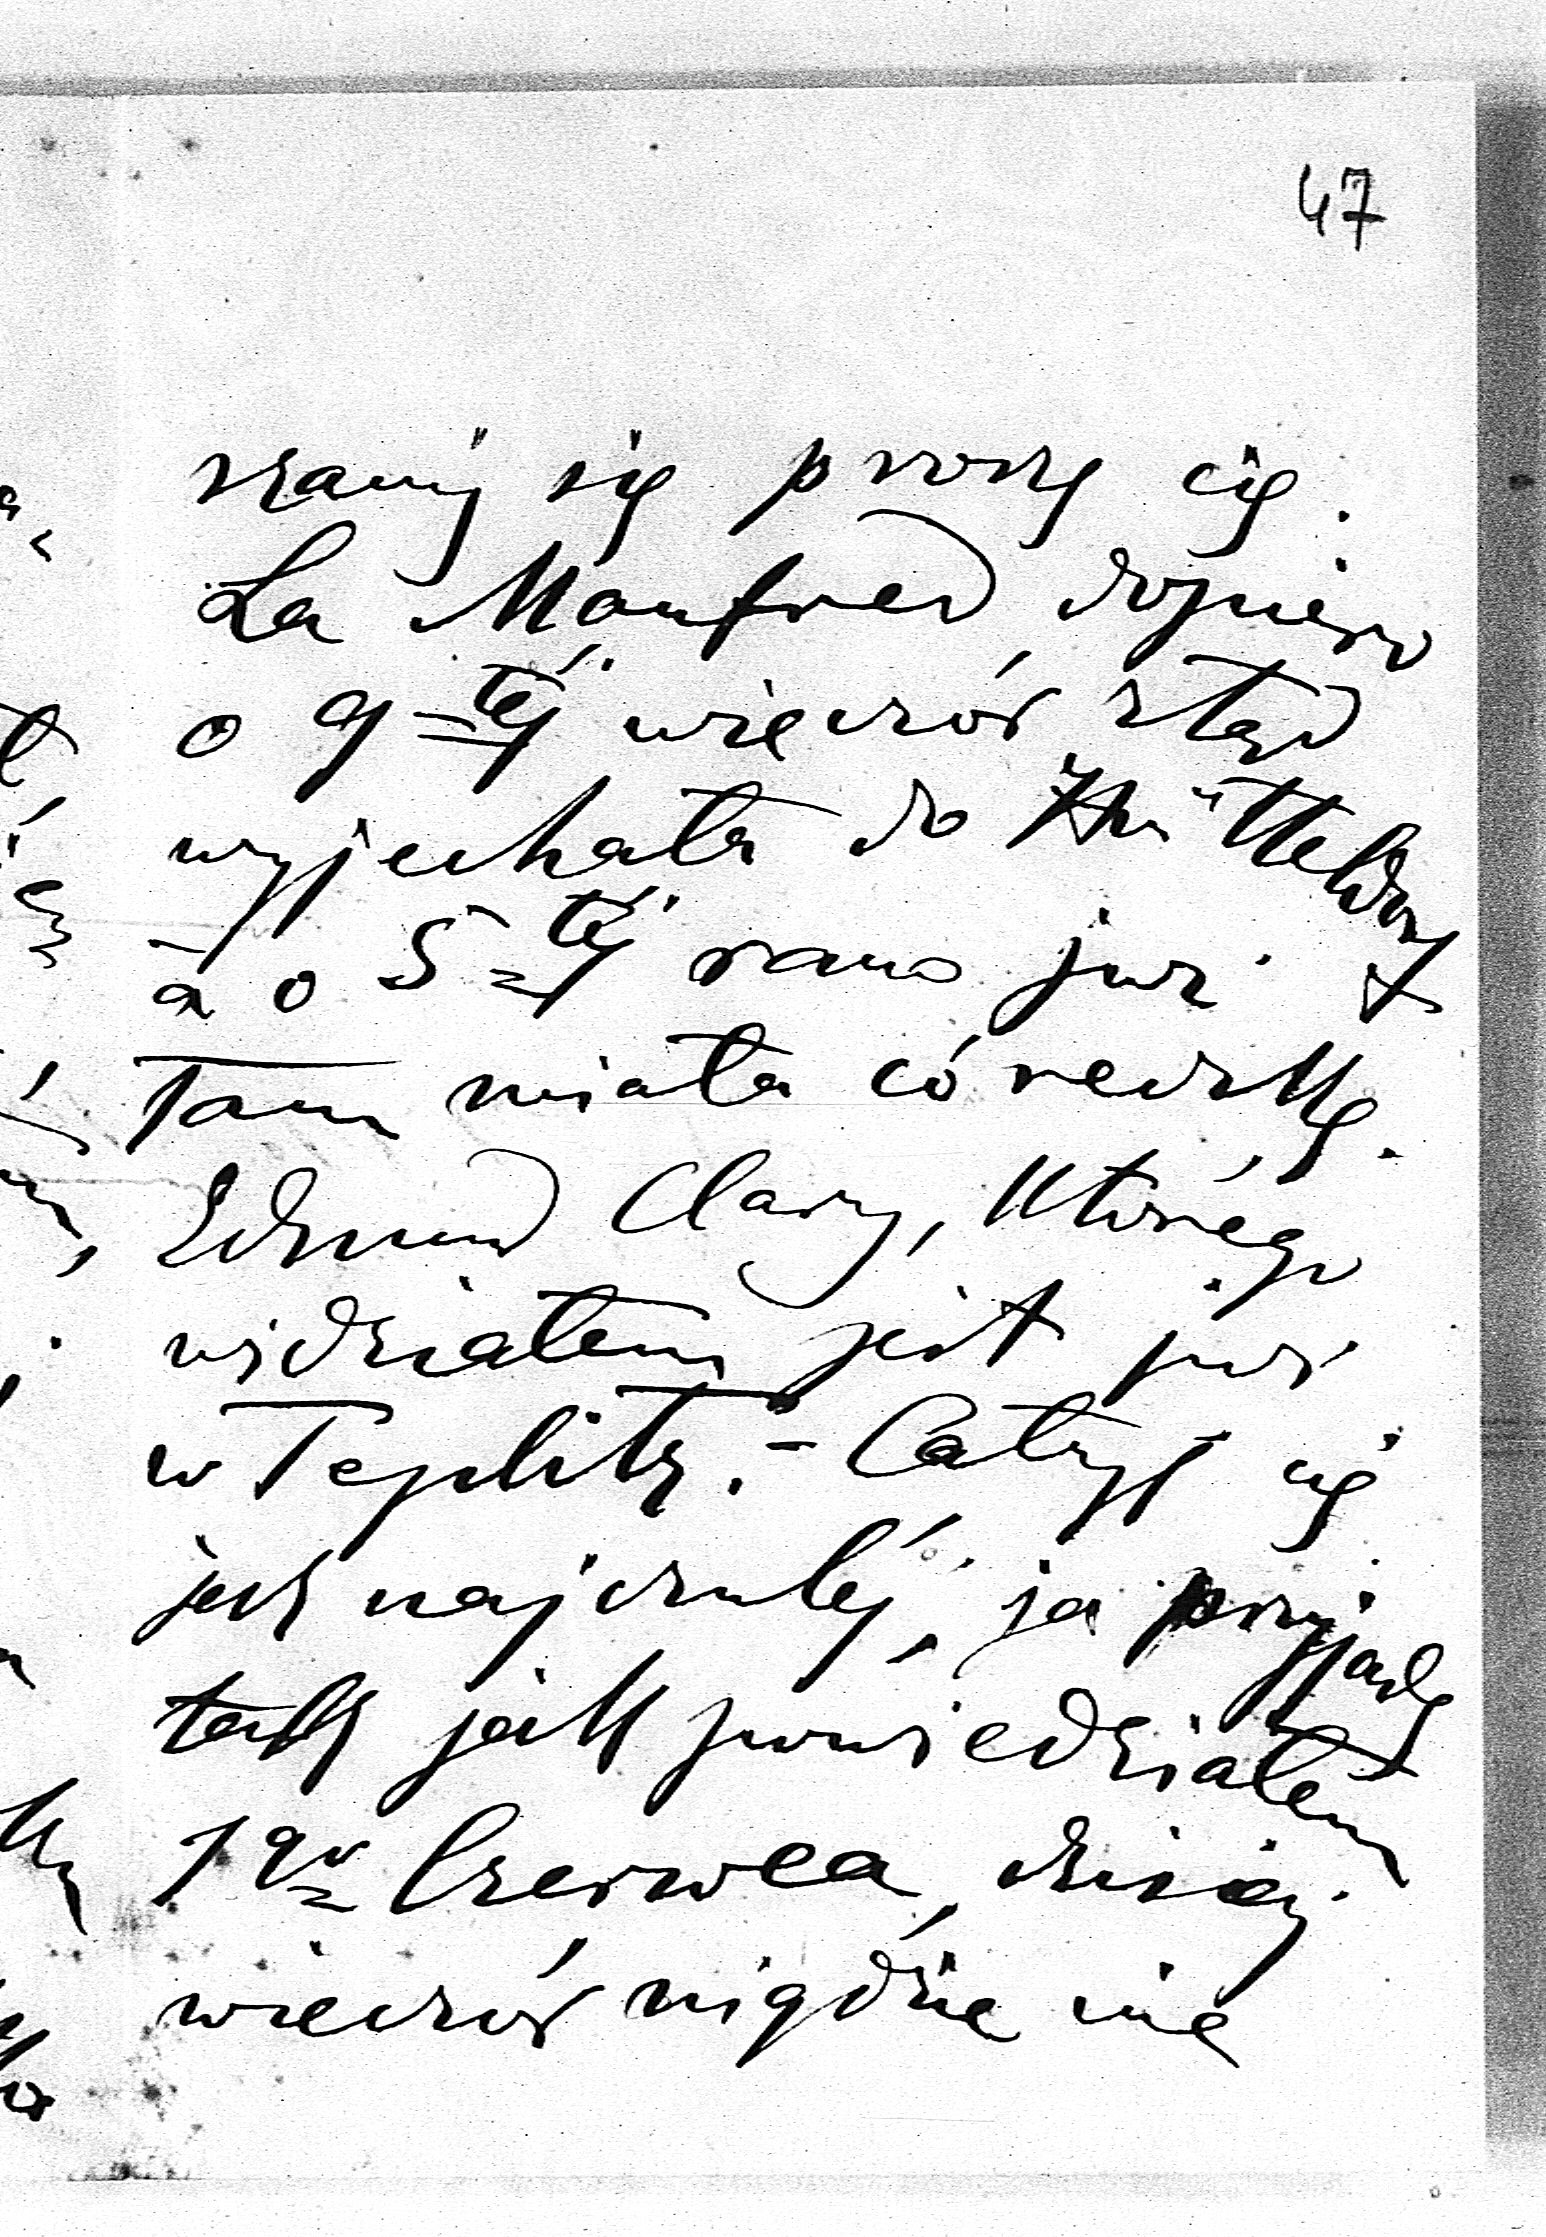 47
szanuj się proszę cię.
La Manfred dopiero
o 9-téj wieczór ztąd
wyjechała do Hütteldorf
a o 5-téj rano już
tam miała córeczkę.
Edmund Clary, którego
widziałem jest już
w Teplitz. - Całuję cię
jak najczuléj, ja przyjadę
tak jak powiedziałem
1go Czerwca, dzisiaj
wieczór nigdzie nie